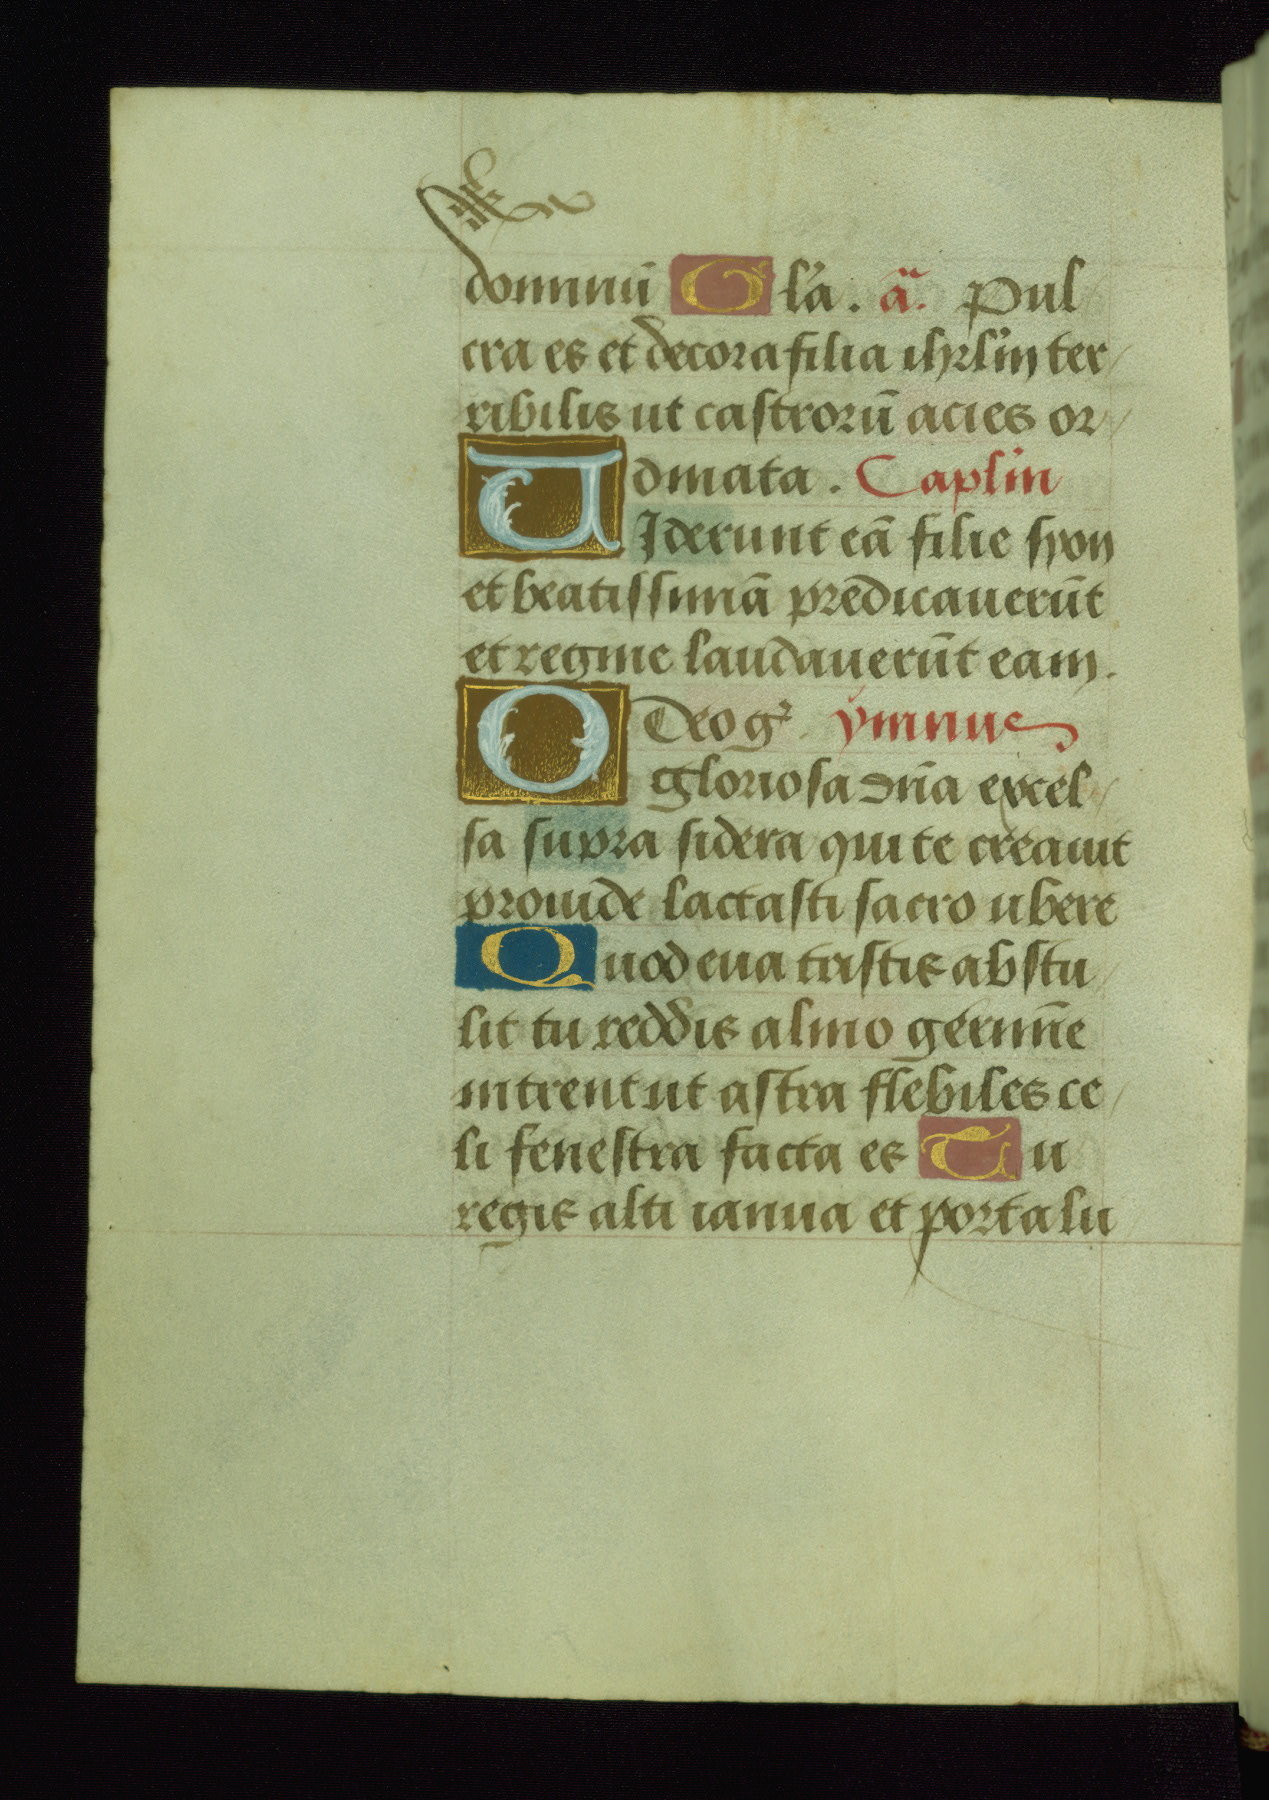 dominũ Gl'a . ã. Pul
cra es et decora filia ihrl'm ter
ribilis ut castrorũ acies or
dinata . Capl'm
VIderunt eã filie syon
et beatissimã predicauerũt
et regine laudauerũt eam.
Deo gr̃. ymnus
O gloriosa dñа excel
sa supra sidera qui te creauit
prouide lactasti sacro ubere
Quod eua tristis abstu
lit tu reddis almo germĩe
intrent ut astra flebiles ce
li fenestra facta es Tu
regis alti ianua et porta lu